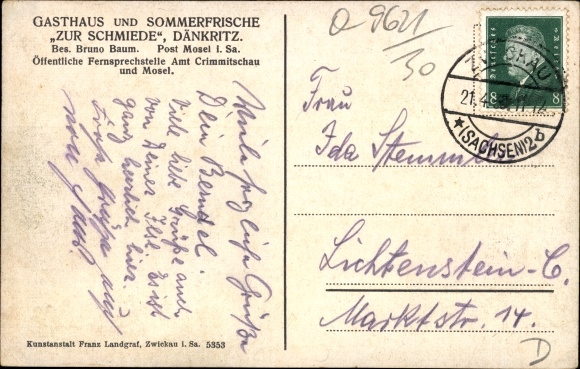 GASTHAUS UND SOMMERFRISCHE
„ZUR SCHMIEDE“, DÄNKRITZ.
Bes. Bruno Baum. Post Mosel i. Sa.
Öffentliche Fernsprechstelle Amt Crimmitschau
und Mosel.
Viele herzliche Grüße
Dein Bendel.
Viele liebe Grüße auch
von Deiner Ilse. Es ist
ganz herrlich hier.
Grüße auch
von
Q 9621
30
Deutsches Reich
8 8
ZWICKAU
21.4.
(SACHSEN)2 d
Frau
Ida
Lichtenstein-C.
Marktstr. 14.
D
Kunstanstalt Franz Landgraf, Zwickau i. Sa. 5353